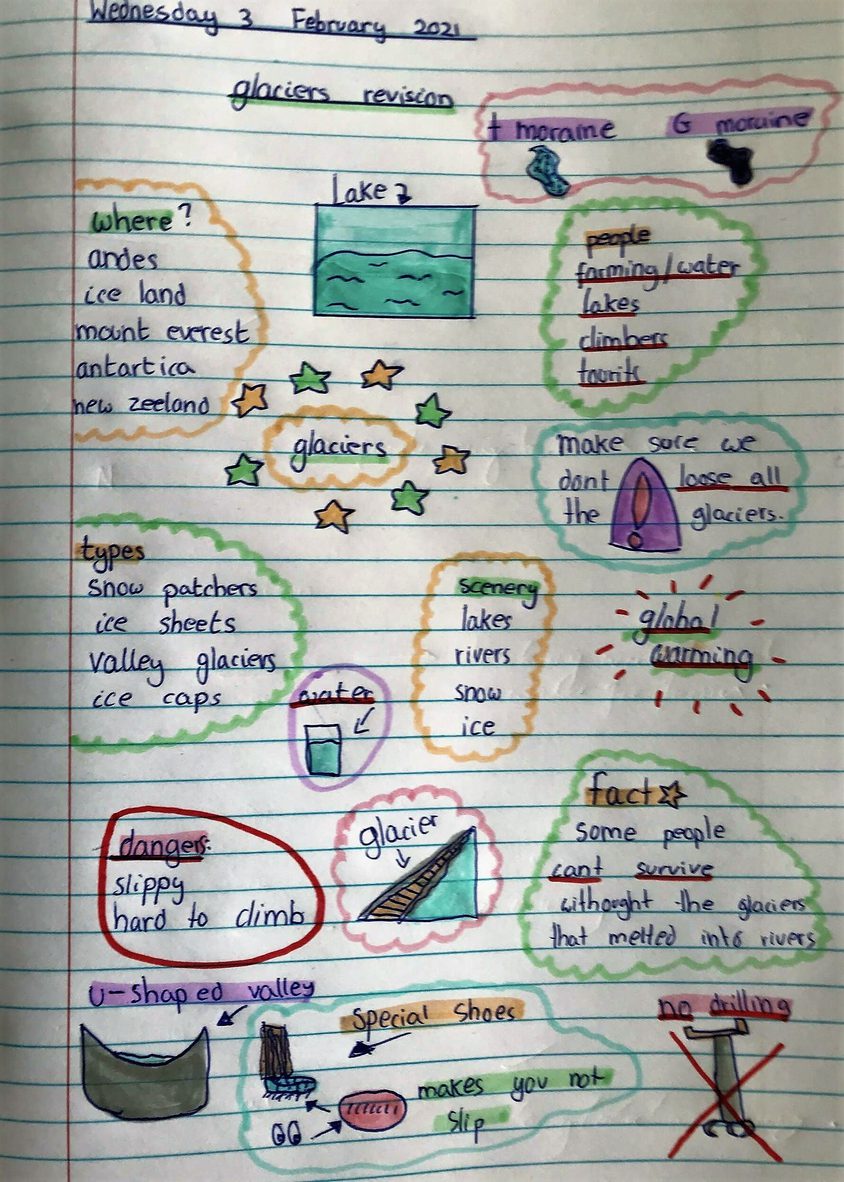 Wednesday 3 February 2021
glaciers revision
t moraine G moraine
Lake
where?
andes
ice land
mount everest
antartica
new zeeland
people
farming/water
lakes
climbers
tourits
glaciers
make sure we
dont loose all
the ! glaciers.
types
snow patchers
ice sheets
valley glaciers
ice caps
water
scenery
lakes
rivers
snow
ice
global
warming
dangers:
slippy
hard to climb
glacier
fact
some people
cant survive
withought the glaciers
that melted into rivers
U-shaped valley
special shoes
makes you not
slip
no drilling